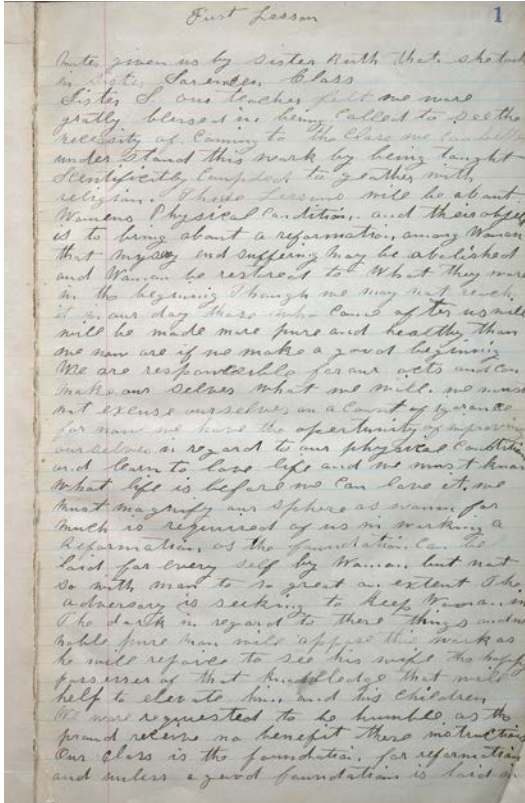 First Lesson
1
Notes given us by Sister Ruth that she took
in Sister Class
Sister S. our teacher felt we were
gratly blessed in being called to see the
necisity of Coming to the Class we can better
under stand this work by being taught
Scentificitly Coupled to geather with
religion. These Lessons will be about
Womens Physical Condition, and their object
is to bring about a reformation among Women
that mysery and suffering may be abolished
and Woman be restored to What they were
in the beginning Though we may not reach
it in our day those who Come after us will
will be made more pure and healthy than
we now are if we make a good beginning
We are responcible for our acts and can
make our selves what we will. we must
not excuse ourselves on a Count of
for now we have the opertunity of improving
ourselves in regard to our physical Condition
and learn to love life and we must know
what life is before we can love it. we
must magnify our sphere as woman for
much is required of us in working a
Reformation, as the foundation Can be
laid for every self by Woman but not
so with man to so great an extent The
adversary is seeking to keep Woman in
The dark in regard to these things and no
noble pure man will appose this work as
he will rejoice to see his wife the happy
possesser of that knowledge that will
help to elevate him and his children
We were requested to be humble as the
proud receive no benefit these instructions
Our class is the foundation for reformation
and unless a good foundation is laid in